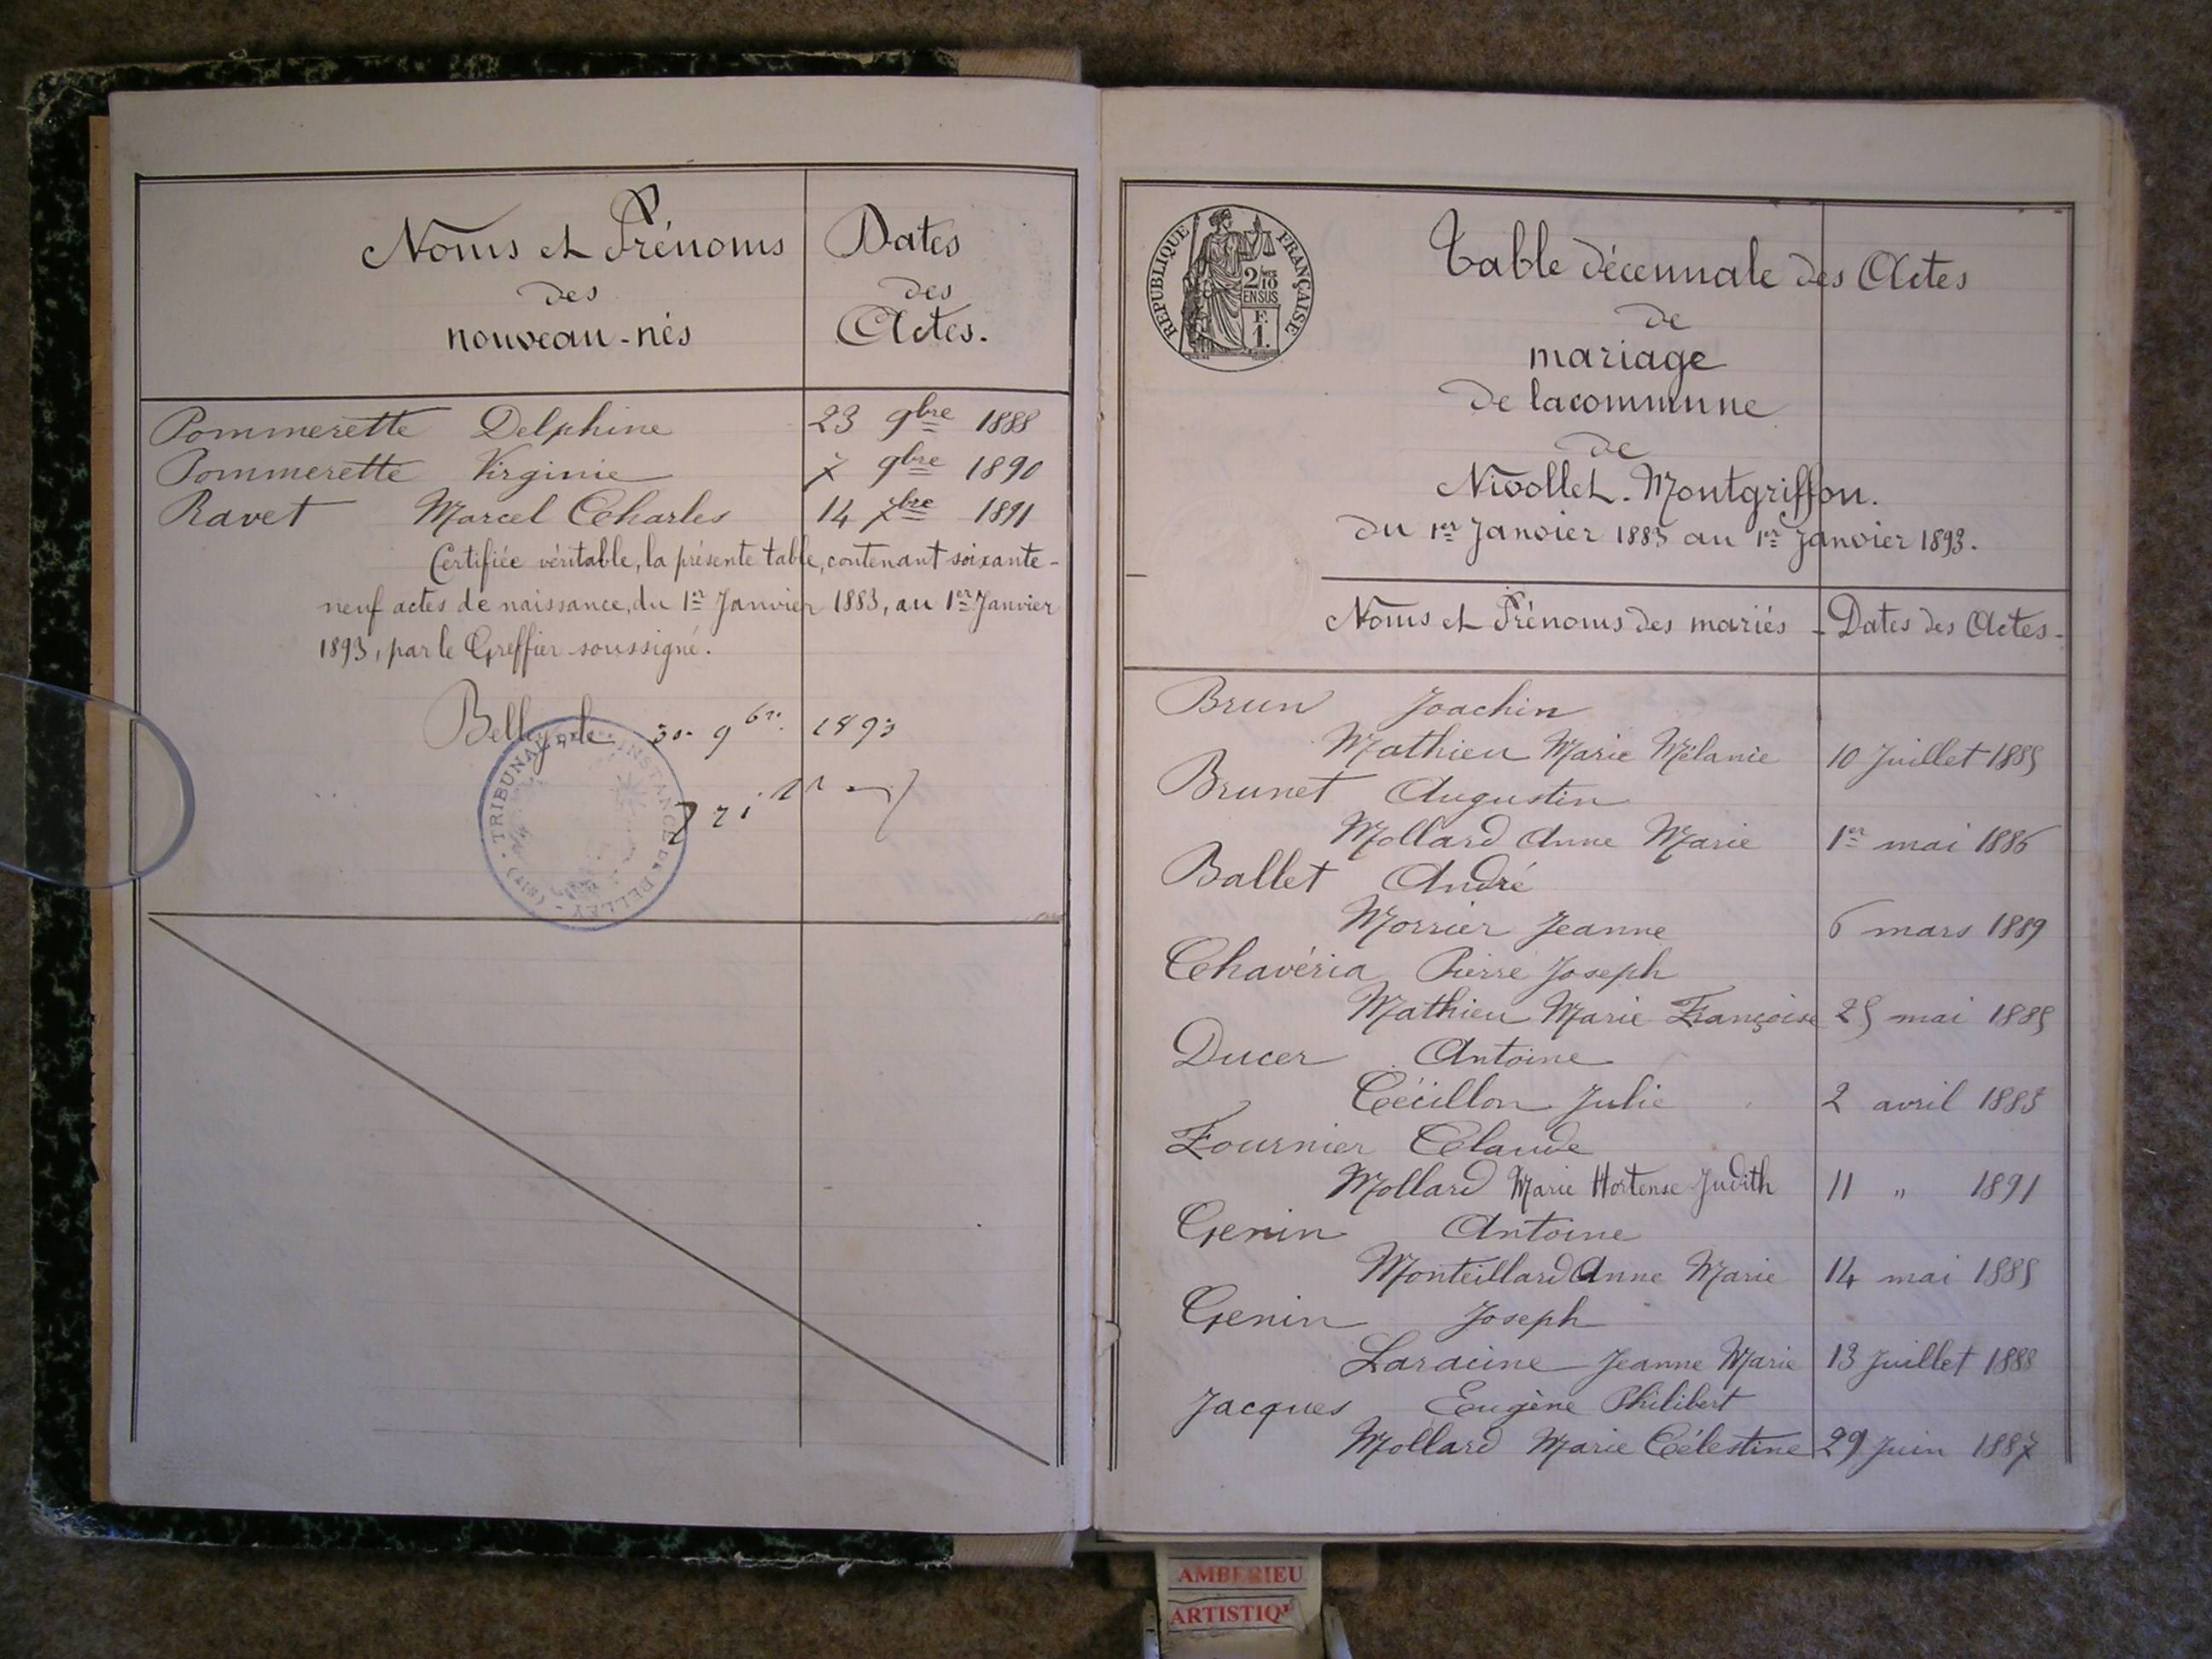 Noms et Prénoms
des
nouveau-nés
Dates
des
Actes.
Pommerette Delphine 23 9bre 1888
Pommerette Virginie 7 9bre 1890
Ravet Marcel Charles 14 7bre 1891
Certifiée véritable, la présente table, contenant soixante-
neuf actes de naissance, du 1er Janvier 1883, au 1er Janvier
1893, par le Greffier soussigné.
Belley, le 30 9bre 1893
TRIBUNAL INSTANCE DE BELLEY
REPUBLIQUE FRANÇAISE
2/10
EN SUS
F.
1.
Table décennale des Actes
de
mariage
de lacommune
de
Nivollet-Montgriffon.
du 1er Janvier 1883 au 1er Janvier 1893.
Noms et Prénoms des mariés - Dates des Actes-
Brun Joachin
Mathieu Marie Mélanie 10 Juillet 1885
Brunet Augustin
Mollard Anne Marie 1er mai 1886
Ballet André
Morrier Jeanne 6 mars 1889
Chavéria Pierre Joseph
Mathieu Marie Françoise 25 mai 1885
Ducer Antoine
Cécillon Julie 2 avril 1883
Fournier Claude
Mollard Marie Hortense Judith 11 " 1891
Genin Antoine
Monteillard Anne Marie 14 mai 1885
Genin Joseph
Laracine Jeanne Marie 13 Juillet 1888
Jacques Eugène Philibert
Mollard Marie Célestine 29 Juin 1887
AMBERIEU
ARTISTIQ